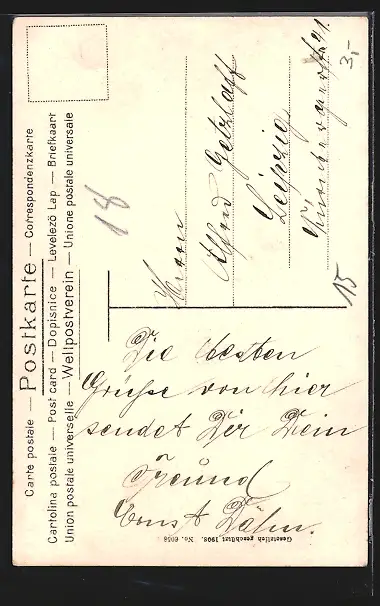 Carte postale — Postkarte — Correspondenzkarte
Cartolina postale — Post card — Dopisnice — Levelező Lap — Briefkaart
Union postale universelle — Weltpostverein — Unione postale universale
18
3,-
Herrn
Alfred Getzlaff
Leipzig
91
15
Die besten
Grüße von hier
sendet Dir Dein
Freund
Ernst Dähn.
Gesetzlich geschützt 1908. No. 6056